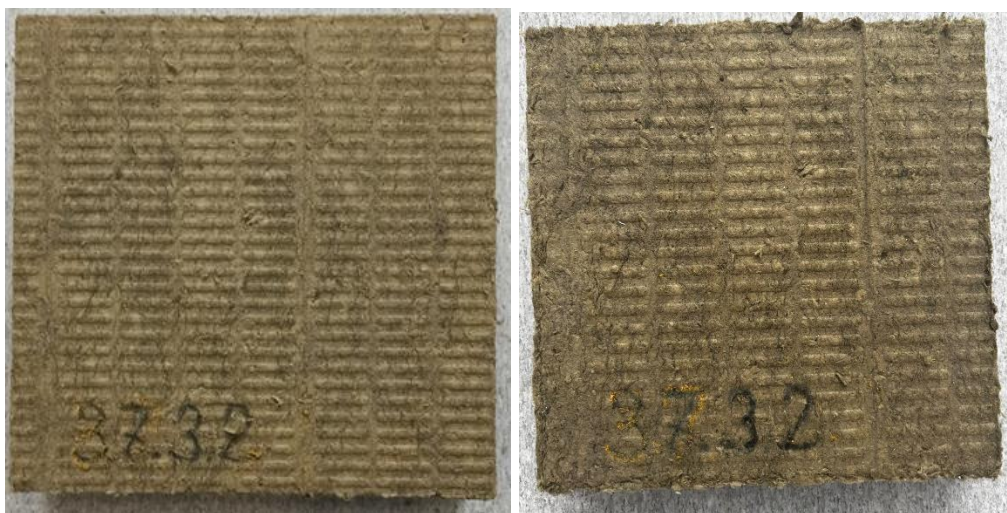 37.3.2
37.32